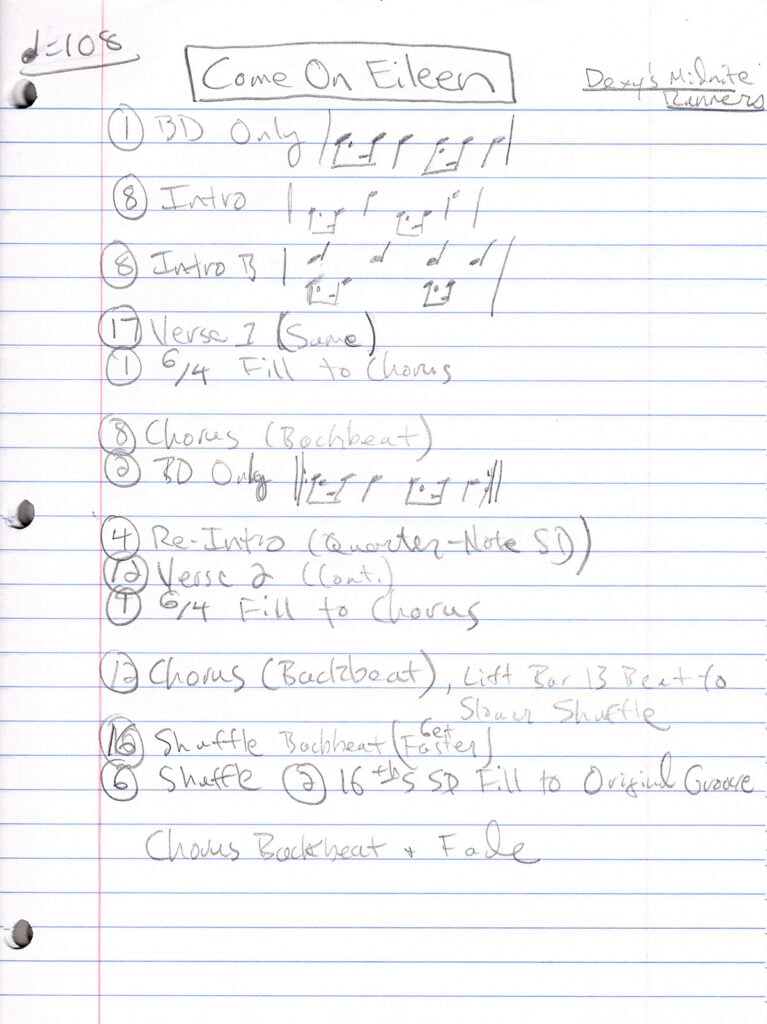 ♩=108
Come On Eileen
Dexy's Midnite
Runners
① BD Only
⑧ Intro
⑧ Intro B
⑰ Verse 1 (Same)
① 6/4 Fill to Chorus
⑧ Chorus (Backbeat)
② BD Only
④ Re-Intro (Quarter-Note SD)
⑫ Verse 2 (Cont.)
① 6/4 Fill to Chorus
⑫ Chorus (Backbeat), Lift Bar 13 Beat to
Slower Shuffle
⑯ Shuffle Backbeat (Get Faster)
⑥ Shuffle ② 16ths SD Fill to Original Groove
Chorus Backbeat + Fade